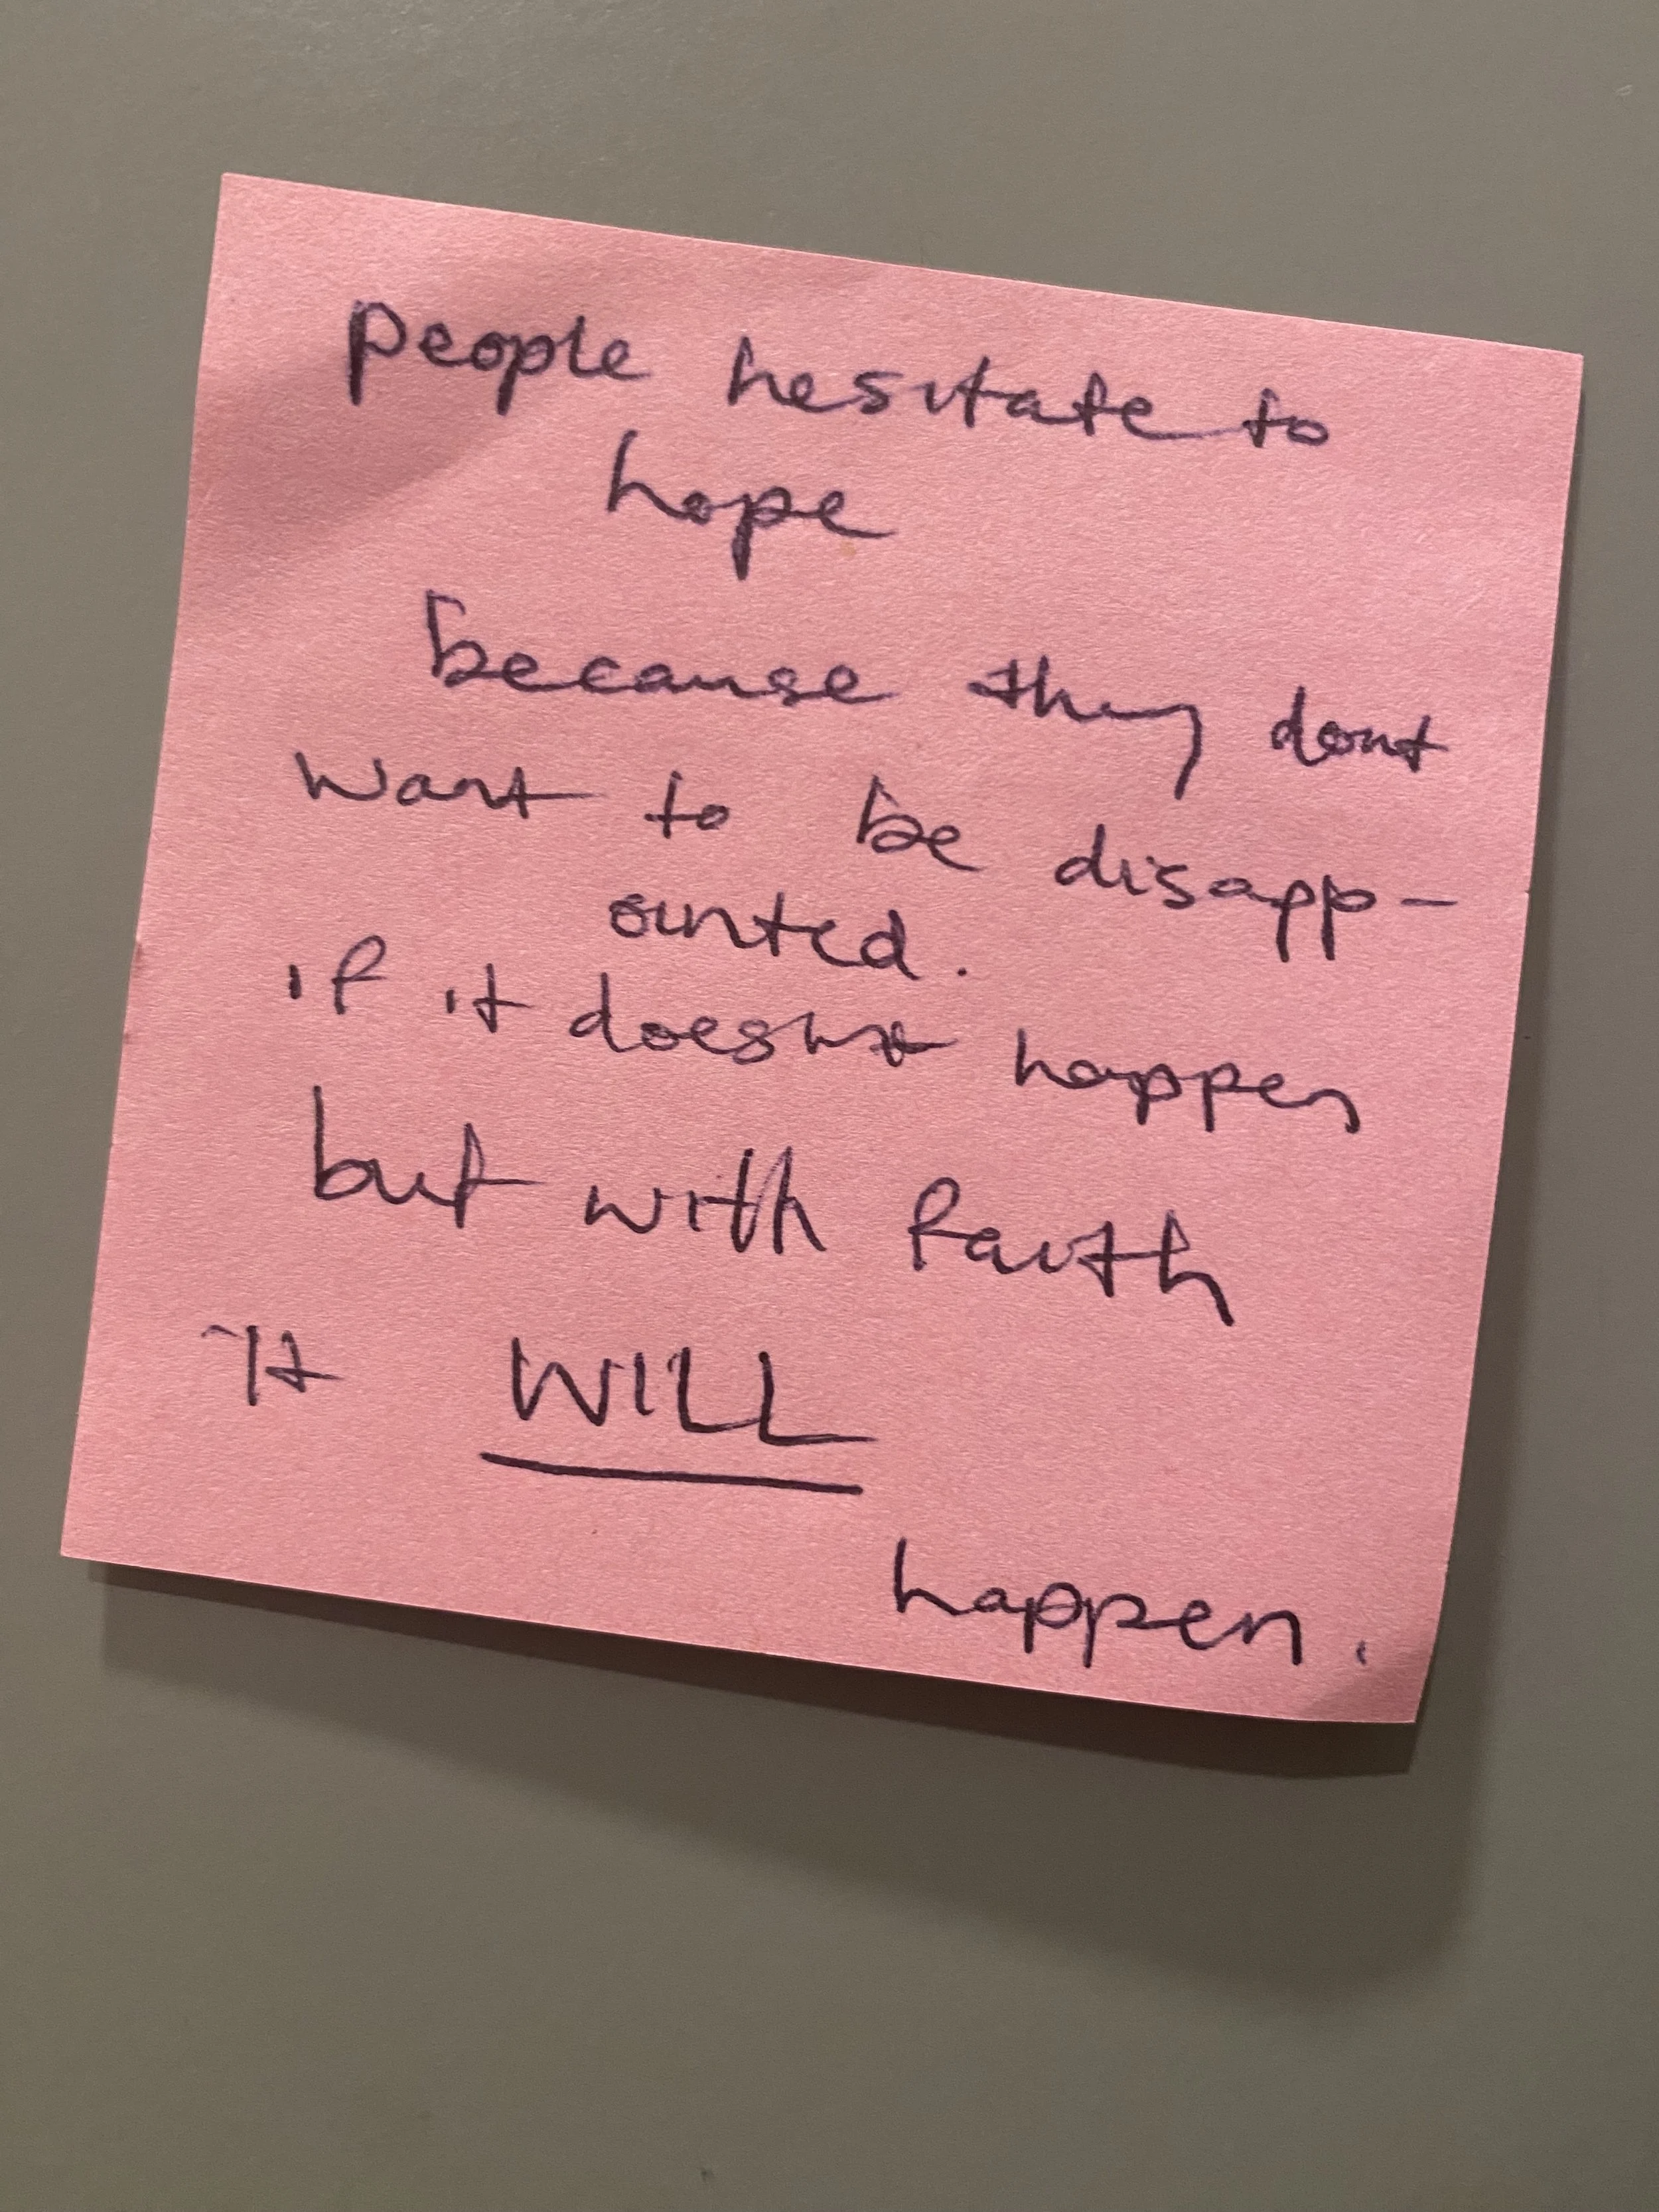 people hesitate to
hope
because they dont
want to be disapp-
ointed.
if it doesnt happen
but with faith
It WILL
happen.